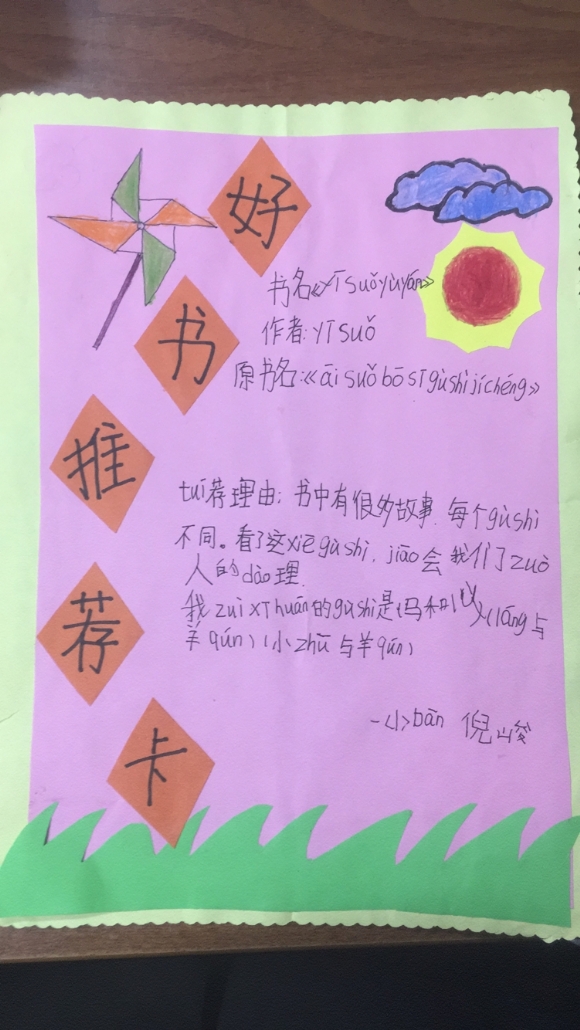 好书推荐卡
书名《yī suǒ yù yán》
作者:yī suǒ
原书名:《āi suǒ bō sī gù shì jí chéng》
tuī荐理由:书中有很多故事.每个gù shì
不同。看了这xiē gù shì,jiāo会我们了zuò
人的dào理.
我zuì xī huān的gù shì是
羊qún)(小zhū与羊qún)
一(1)bān 倪山峻